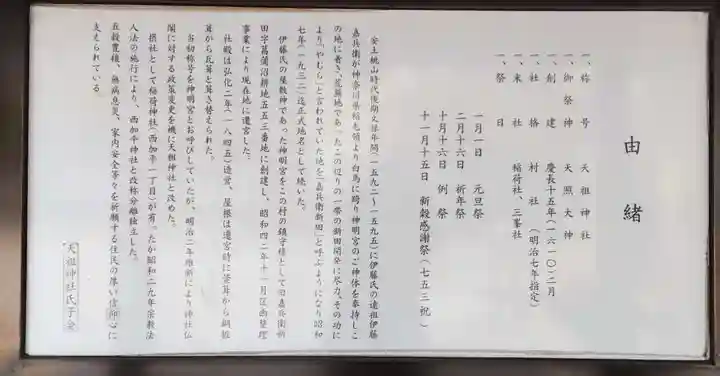 由緒
一、称号 天祖神社
一、御祭神 天照大神
一、創建 慶長十五年(一六一〇)二月
一、社格 村社 (明治七年指定)
一、末社 稲荷社、三峯社
一、祭日
一月一日 元旦祭
二月十六日 祈年祭
十月十六日 例祭
十一月十五日 新穀感謝祭(七五三祝)
安土桃山時代後期文禄年間(一五九二〜一五九五)に伊藤氏の遠祖伊藤
嘉兵衛が神奈川県稲毛領より白馬に跨り神明宮のご神体を奉持しこ
の地に着き、荒蕪地であったこの辺りの一帯の新田開発に尽力、その功に
より「やむら」と言われていた地を「嘉兵衛新田」と呼ぶようになり昭和
七年(一九三二)迄正式地名として続いた。
伊藤氏の屋敷神であった神明宮をこの村の鎮守様として旧嘉兵衛新
田字菖蒲沼耕地五五三番地に創建し、昭和四二年十一月区画整理
事業により現在地に遷宮した。
社殿は弘化二年(一八四五)造営、屋根は遷宮時に茅葺から銅板
葺から瓦葺と葺き替えられた。
当初称号を神明宮とお呼びしていたが、明治二年維新により神社仏
閣に対する政策変更を機に天祖神社と改めた。
摂社として稲荷神社(西加平一丁目)が有ったが昭和二九年宗教法
人法の施行により、西加平神社と改称分離独立した。
五穀豊穣、無病息災、家内安全等々を祈願する住民の厚い信仰心に
支えられている。
天祖神社氏子会